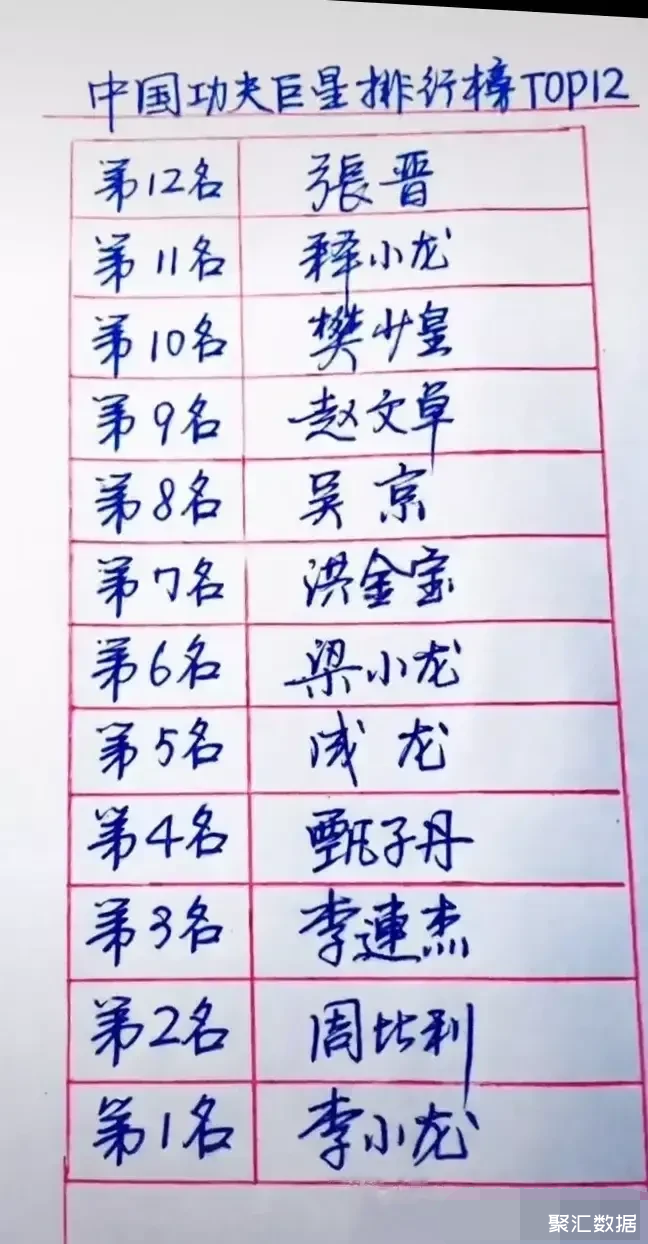 中国功夫巨星排行榜TOP12
第12名 張晋
第11名 释小龙
第10名 樊少皇
第9名 赵文卓
第8名 吴京
第7名 洪金宝
第6名 梁小龙
第5名 成龙
第4名 甄子丹
第3名 李連杰
第2名 周比利
第1名 李小龙
聚汇数据